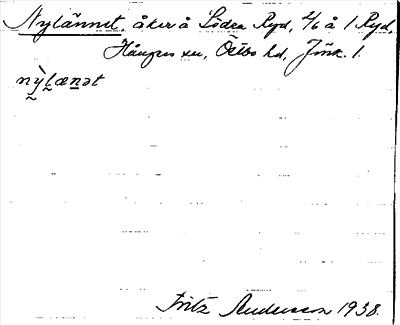 Nylännet, åker å Södra Ryd, 2/6 å 1 Ryd,
Hångers sn, Östbo hd, Jönk. l.
nỳ̖lænət
Fritz Andersson 1938.